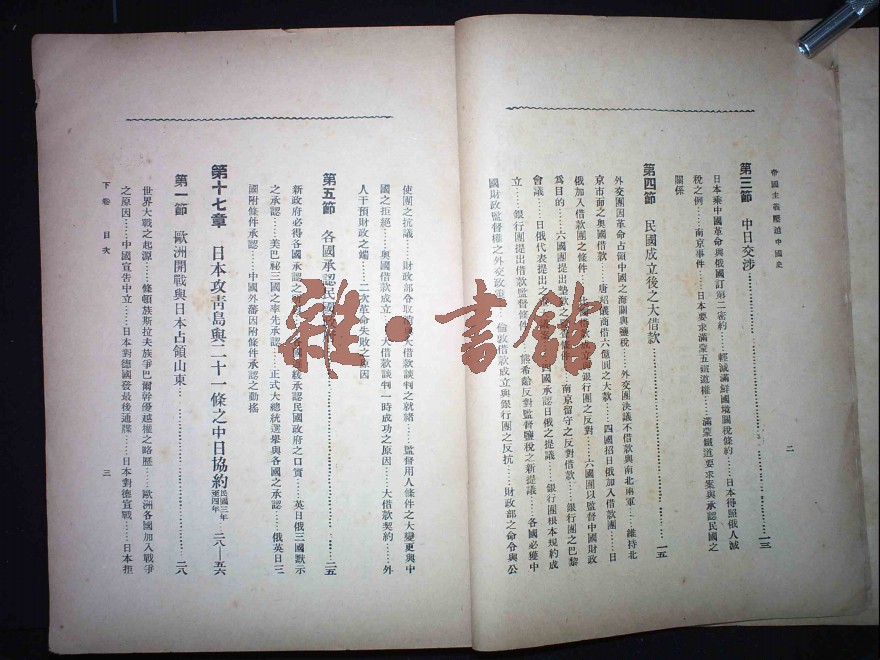 帝國主義壓迫中國史
二
第三節 中日交涉……一三
日本乘中國革命與俄國訂第二密約……輕減滿鮮國境關稅條約……日本得照俄人減
稅之例……南京事件……日本要求滿蒙五鐵道權……滿蒙鐵道要求案與承認民國之
關係
第四節 民國成立後之大借款……一五
外交團因革命占領中國之海關與鹽稅……外交團決議不借款與南北兩軍……維持北
京市面之奧國借款……唐紹儀商借六億圓之大款……四國招日俄加入借款團……日
俄加入借款團之條件……銀行團之反對……六國團以監督中國財政
爲目的……六國團提出墊款之條件……南京留守之反對借款……銀行團之巴黎
會議……日俄代表提出之……四國承認日俄之提議……銀行團根本規約成
立……銀行團提出借款監督條件……熊希齡反對監督鹽稅之新提議……各國必獲中
國財政監督權之外交政策……倫敦借款成立與銀行團之反抗……財政部之命令與公
使團之抗議……財政部令取消大借款談判之就緒……監督用人條件之大變更與中
國之拒絕……奧國借款成立……大借款談判一時成功之原因……大借款契約……外
人干預財政之端……二次革命失敗之原因
第五節 各國承認民國……二五
新政府必得各國承認之……各國延緩承認民國政府之口實……英日俄三國默示
之承認……美巴祕三國之率先承認……正式大總統選舉與各國之承認……俄英日三
國附條件承認……中國外藩因附條件承認之動搖
第十七章 日本攻靑島與二十一條之中日協約 民國三年至四年 二八—五六
第一節 歐洲開戰與日本占領山東……二八
世界大戰之起源……條頓族斯拉夫族爭巴爾幹優越權之略歷……歐洲各國加入戰爭
之原因……中國宣告中立……日本對德國發最後通牒……日本對德宣戰……日本拒
下卷 目次
三
雜·書館